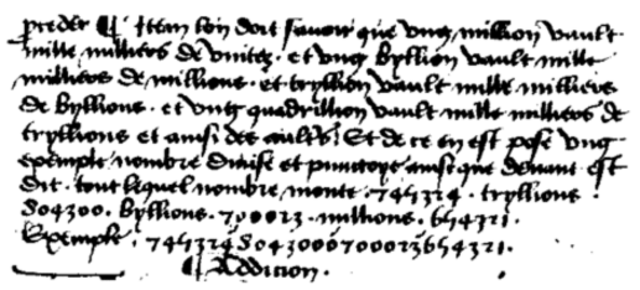 preder ¶ Item lon doit savoir que ung million vault
mille milliers de unitez . et ung byllion vault mille
milliers de millions . et tryllion vault mille milliers
de byllions . et ung quadrillion vault mille milliers de
tryllions et ainsi des aultres Et de ce en est pose ung
exemple nombre divise et punctoye ainsi que devant est
dit . tout lequel nombre monte . 745324 . tryllions .
804300 . byllions . 700023 . millions . 654321 .
Exemple . 745324'8043000'700023'654321 .
¶ Addicion .